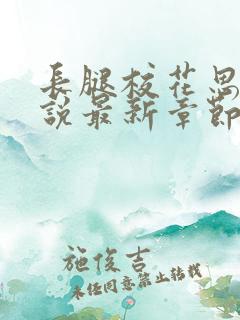 長腿校花思
說最新章節
施俊吉
未经同意禁止转载